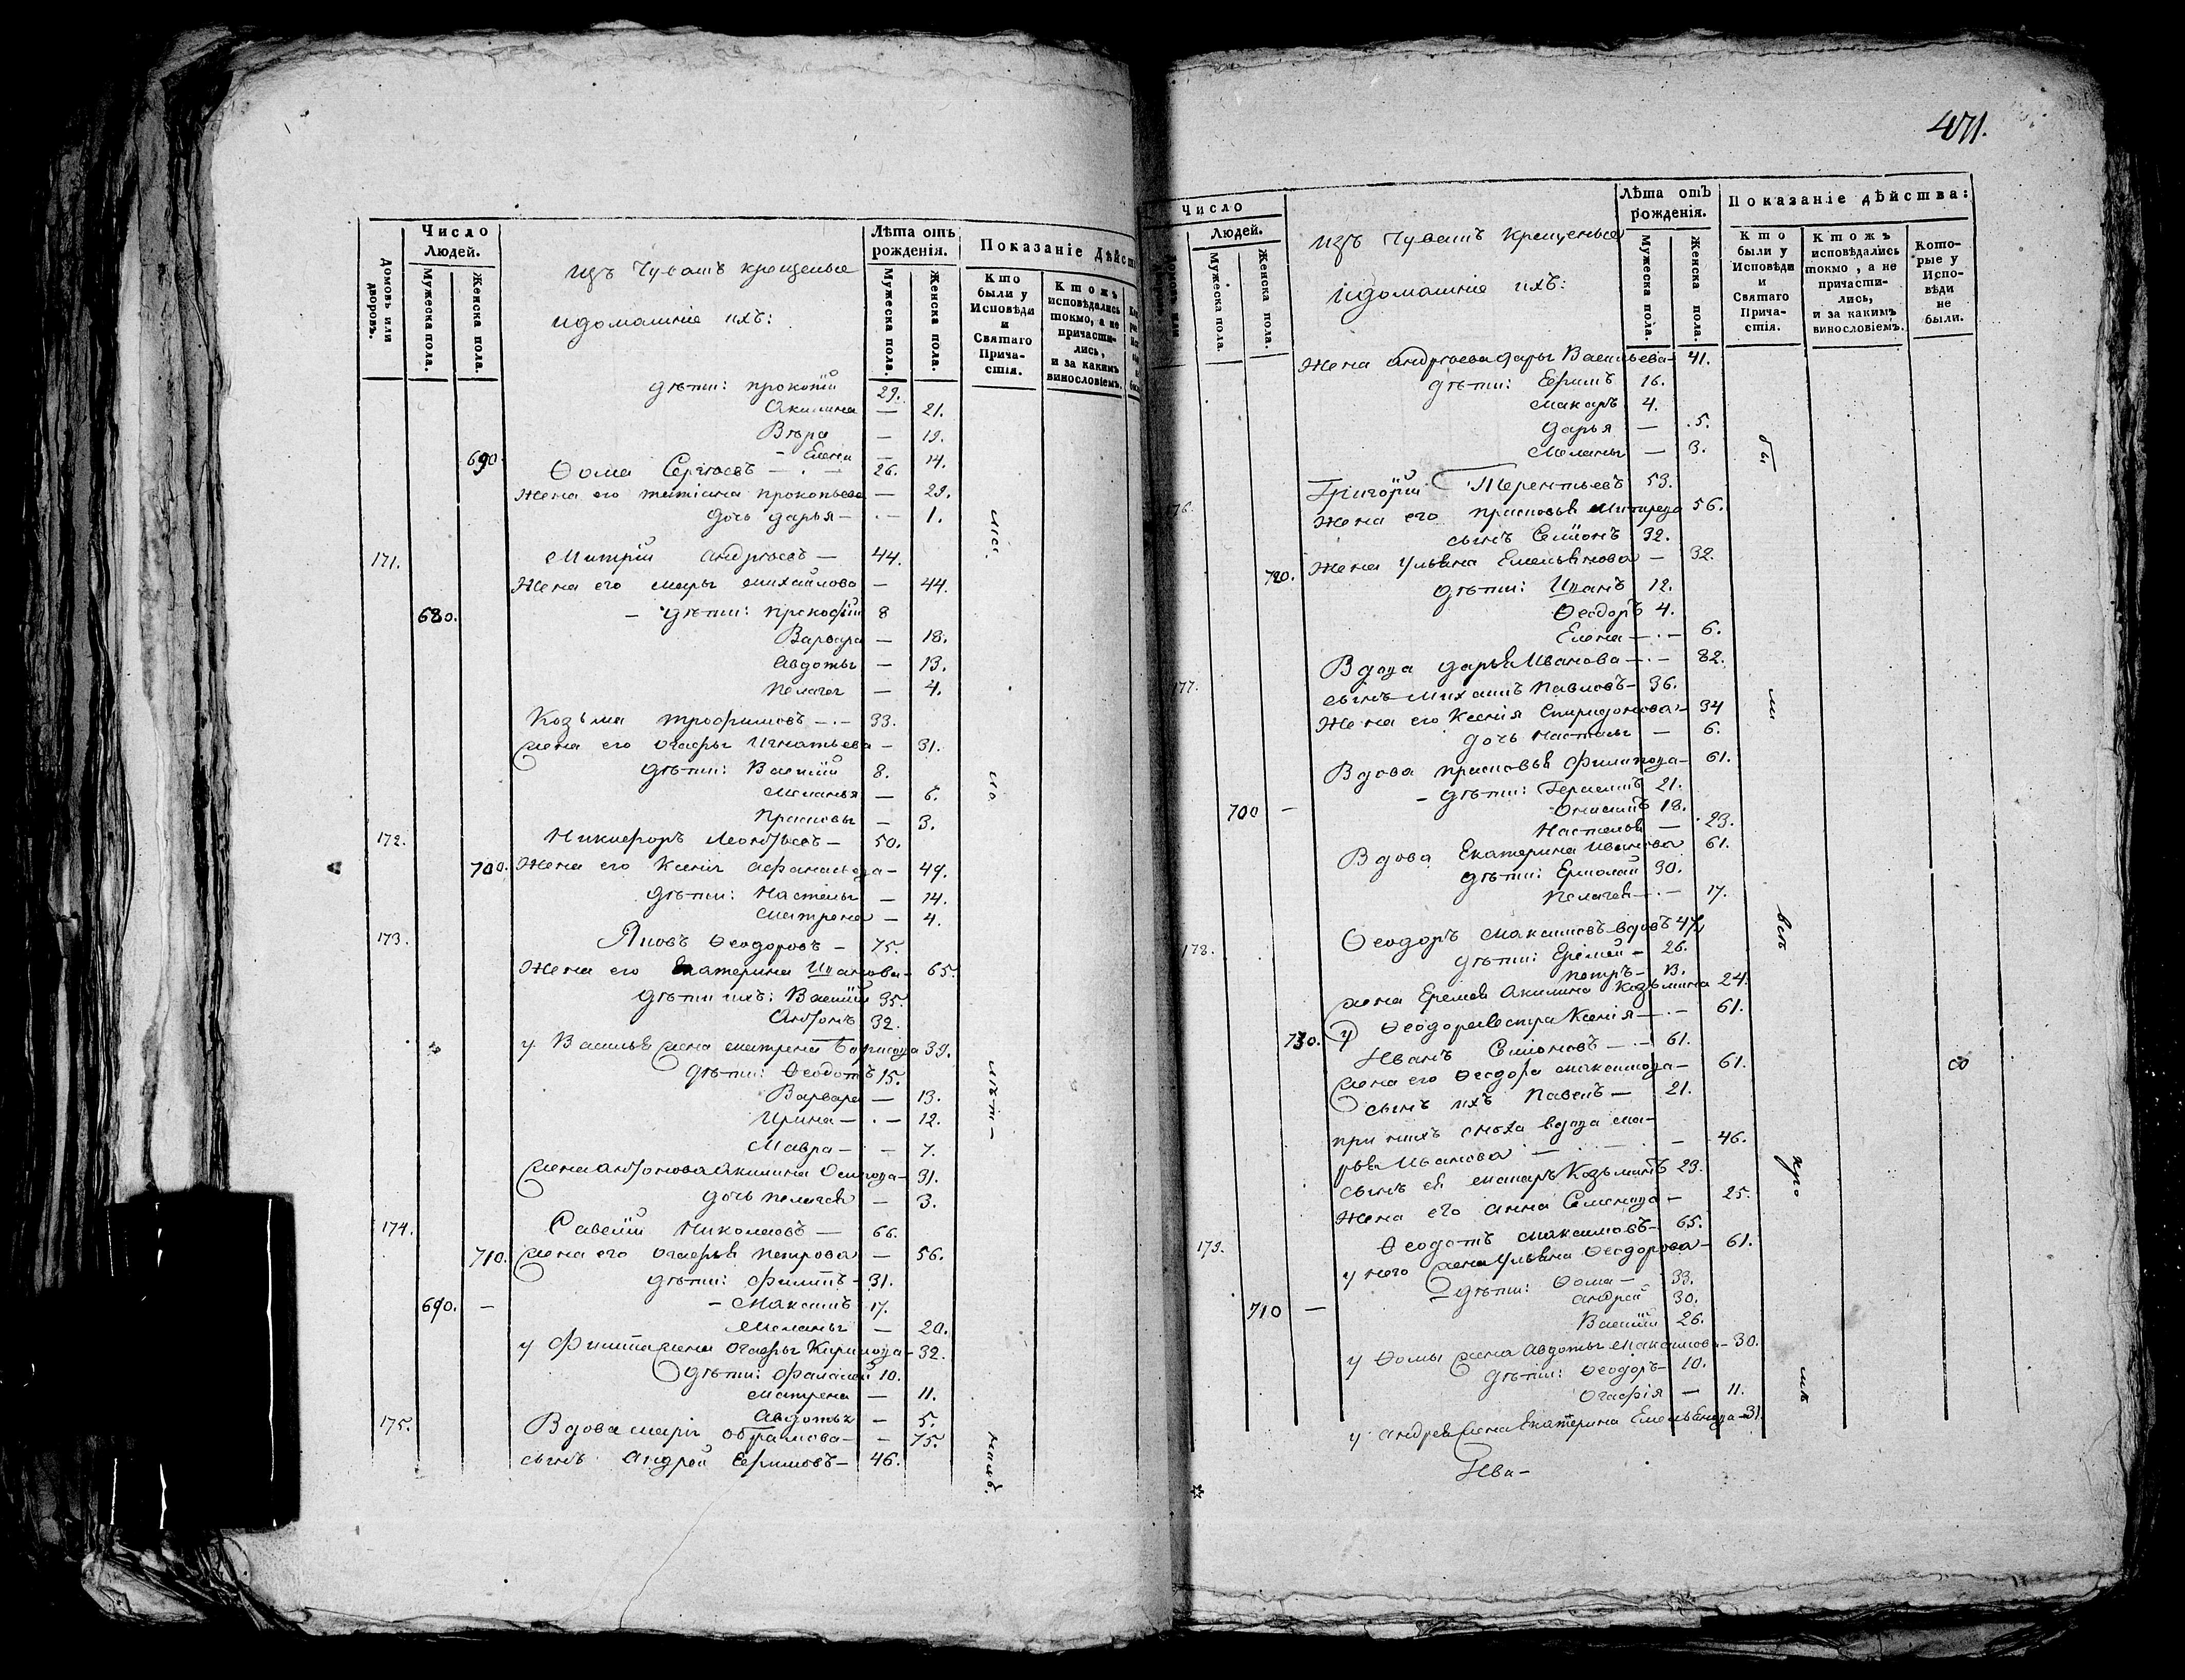 471.
Число
Людей.
Домовъ или дворовъ.
Мужеска пола.
Женска пола.
изъ Чувашъ крещеные
идомашніе ихъ:
Лѣта отъ
рожденія.
Мужеска пола.
Женска пола.
Показаніе Дѣйст
Кто были у Исповѣди и Святаго Прича-стія.
Ктожъ исповѣдались токмо, а не причасти-лись, и за какимъ винословіемъ.
дѣти: прокопій 29.
Акилина — 21.
Вѣра — 19.
690. Елена — 14.
Ѳома Сергѣевъ — 26.
Жена его татіана прокопьева — 29.
дочь дарья — 1.
171. Митрій андрѣевъ — 44.
Жена его марья михайлова — 44.
680. — дѣти: прокофій 8
Варвара — 18.
авдотья — 13.
пелагея — 4.
Козьма трофимовъ — 33.
жена его огафья Игнатьева — 31.
дѣти: Василій 8.
Меланья — 6.
Прасковья — 3.
172. Никифоръ Леонтьевъ — 50.
700. Жена его Ксенія афанасьева — 49.
дѣти: Настасья — 14.
матрена — 4.
173. Яковъ Ѳеодоровъ — 75.
Жена его Екатерина Иванова — 65.
дѣти ихъ: Василій 35.
Антонъ 32.
у Василья жена матрена Борисова 39.
дѣти: Ѳеодотъ 15.
Варвара — 13.
Ирина — 12.
Мавра — 7.
жена антонова акилина Осипова — 31.
дочь пелагея — 3.
174. Савелій Николаевъ — 66.
710. жена его огафья петрова — 56.
дѣти: филипъ — 31.
690. — — Максимъ 17.
Меланья — 20.
у Филипа жена огафья Кирилова — 32.
дѣти: фалалей 10.
матрена — 11.
авдотья — 5.
175. Вдова марія обрамова — 75.
сынъ Андрей Ефимовъ — 46.
Число
Людей.
Мужеска пола.
Женска пола.
изъ Чувашъ Крещеные
идомашніе ихъ:
Лѣта отъ
рожденія.
Мужеска пола.
Женска пола.
Показаніе дѣйства:
Кто были у Исповѣди и Святаго Прича-стія.
Ктожъ исповѣдались токмо, а не причасти-лись, и за какимъ винословіемъ.
Кото-рые у Испо-вѣди не были.
Жена андрѣева дарья Васильева — 41.
дѣти: Ефимъ 16.
макаръ 4.
дарья — 5.
Меланья — 3.
176. Григорій Терентьевъ 53.
Жена его прасковья 56.
сынъ Семіонъ 32.
720. Жена Ульяна Емельянова — 32.
дѣти: Иванъ 12.
Ѳеодоръ 4.
Елена — 6.
177. Вдова дарья Иванова — 82.
сынъ Михаилъ Павловъ — 36.
Жена его Ксенія Спиридонова — 34
дочь Настасья — 6.
Вдова прасковья Филипова — 61.
— дѣти: Герасимъ 21.
700 — Онисимъ 18.
Настасья — 23.
Вдова Екатерина Иванова 61.
дѣти: Ермолай 30.
Пелагея — 17.
178. Ѳеодоръ максимовъ вдовъ 47.
дѣти: Еремей — 26.
петръ — 13.
жена Еремея Акилина Козьмина 24.
730. у Ѳеодора сестра Ксенія — 61.
Иванъ Семіоновъ — 61.
жена его Ѳеодора максимова — 61.
сынъ ихъ Павелъ — 21.
при нихъ сноха вдова ма-
рья Иванова — 46.
сынъ ея макаръ Козьминъ 23.
Жена его анна Семенова — 25.
179. Ѳеодотъ максимовъ — 65.
у него жена Ульяна Ѳеодорова — 61.
— дѣти: Ѳома — 33.
710 — андрей 30.
Василій 26.
у Ѳомы жена авдотья максимова — 30.
дѣти: Ѳеодоръ — 10.
огафія — 11.
у андрея жена Екатерина Емельянова — 31.
Ива-
бы
ли
всѣ